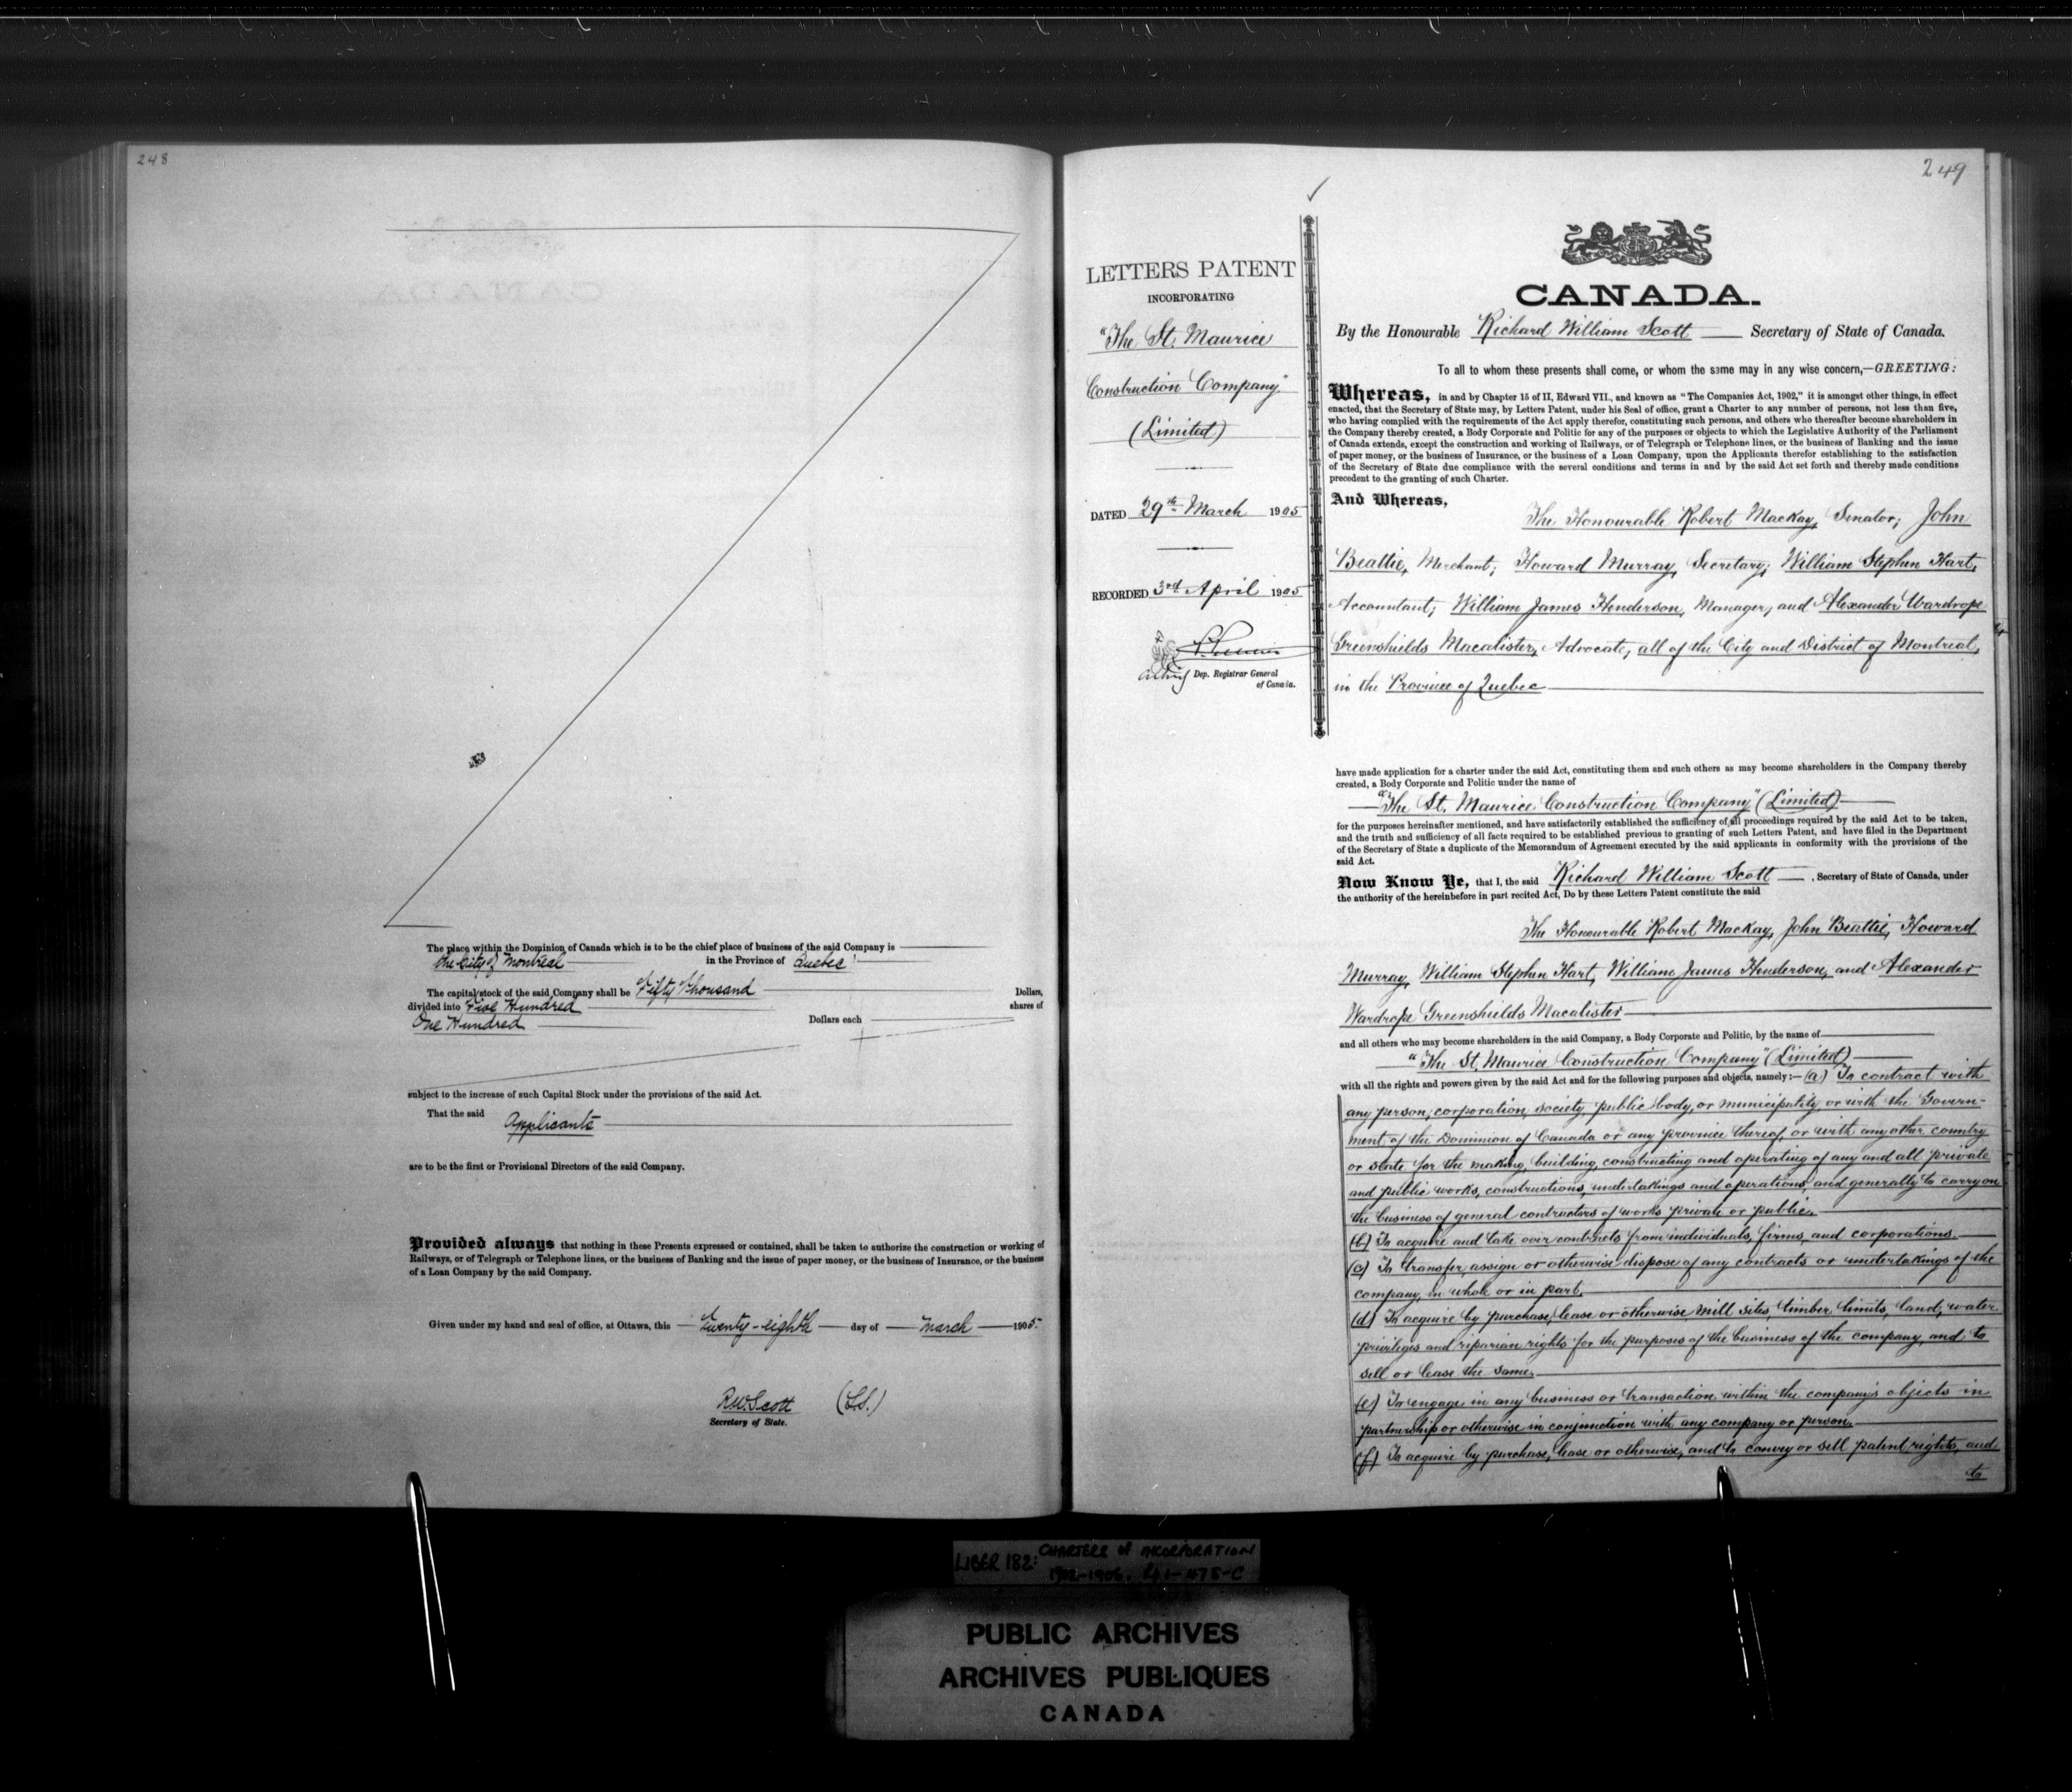 248
The place within the Dominion of Canada which is to be the chief place of business of the said Company is
the City of Montreal in the Province of Quebec
The capital stock of the said Company shall be Fifty Thousand Dollars,
divided into Five Hundred shares of
One Hundred Dollars each
subject to the increase of such Capital Stock under the provisions of the said Act.
That the said Applicants
are to be the first or Provisional Directors of the said Company.
Provided always that nothing in these Presents expressed or contained, shall be taken to authorize the construction or working of
Railways, or of Telegraph or Telephone lines, or the business of Banking and the issue of paper money, or the business of Insurance, or the business
of a Loan Company by the said Company.
Given under my hand and seal of office, at Ottawa, this twenty-eighth day of March 1905.
R.W. Scott (L.S.)
Secretary of State.
249
LETTERS PATENT
INCORPORATING
"The St. Maurice
Construction Company"
(Limited)
DATED 29th March 1905
RECORDED 3rd April 1905
Acting Dep. Registrar General
of Canada.
CANADA.
By the Honourable Richard William Scott Secretary of State of Canada.
To all to whom these presents shall come, or whom the same may in any wise concern,—GREETING:
Whereas, in and by Chapter 15 of II, Edward VII., and known as "The Companies Act, 1902," it is amongst other things, in effect
enacted, that the Secretary of State may, by Letters Patent, under his Seal of office, grant a Charter to any number of persons, not less than five,
who having complied with the requirements of the Act apply therefor, constituting such persons, and others who thereafter become shareholders in
the Company thereby created, a Body Corporate and Politic for any of the purposes or objects to which the Legislative Authority of the Parliament
of Canada extends, except the construction and working of Railways, or of Telegraph or Telephone lines, or the business of Banking and the issue
of paper money, or the business of Insurance, or the business of a Loan Company, upon the Applicants therefor establishing to the satisfaction
of the Secretary of State due compliance with the several conditions and terms in and by the said Act set forth and thereby made conditions
precedent to the granting of such Charter.
And Whereas,
The Honourable Robert Mackay, Senator; John
Beattie, Merchant; Howard Murray, Secretary; William Stephen Hart,
Accountant; William James Henderson, Manager, and Alexander Wardrope
Greenshields Macalister, Advocate, all of the City and District of Montreal,
in the Province of Quebec
have made application for a charter under the said Act, constituting them and such others as may become shareholders in the Company thereby
created, a Body Corporate and Politic under the name of
"The St. Maurice Construction Company" (Limited)
for the purposes hereinafter mentioned, and have satisfactorily established the sufficiency of all proceedings required by the said Act to be taken,
and the truth and sufficiency of all facts required to be established previous to granting of such Letters Patent, and have filed in the Department
of the Secretary of State a duplicate of the Memorandum of Agreement executed by the said applicants in conformity with the provisions of the
said Act.
Now Know Ye, that I, the said Richard William Scott, Secretary of State of Canada, under
the authority of the hereinbefore in part recited Act, Do by these Letters Patent constitute the said
The Honourable Robert Mackay, John Beattie, Howard
Murray, William Stephen Hart, William James Henderson, and Alexander
Wardrope Greenshields Macalister
and all others who may become shareholders in the said Company, a Body Corporate and Politic, by the name of
"The St. Maurice Construction Company" (Limited)
with all the rights and powers given by the said Act and for the following purposes and objects, namely:— (a) To contract with
any person, corporation, society, public body, or municipality, or with the Govern-
ment of the Dominion of Canada or any province thereof, or with any other country
or state for the making, building, constructing and operating of any and all private
and public works, constructions, undertakings and operations, and generally to carry on
the business of general contractors of works private or public.
(b) To acquire and take over contracts from individuals, firms, and corporations.
(c) To transfer, assign or otherwise dispose of any contracts or undertakings of the
company, in whole or in part.
(d) To acquire by purchase, lease or otherwise mill sites, timber limits, land, water
privileges and riparian rights for the purposes of the business of the company, and to
sell or lease the same.
(e) To engage in any business or transaction within the company's objects in
partnership or otherwise in conjunction with any company or person.
(f) To acquire by purchase, lease or otherwise, and to convey or sell patent rights, and
to
LIBER 182: CHARTERS of INCORPORATION
1902-1906.
PUBLIC ARCHIVES
ARCHIVES PUBLIQUES
CANADA